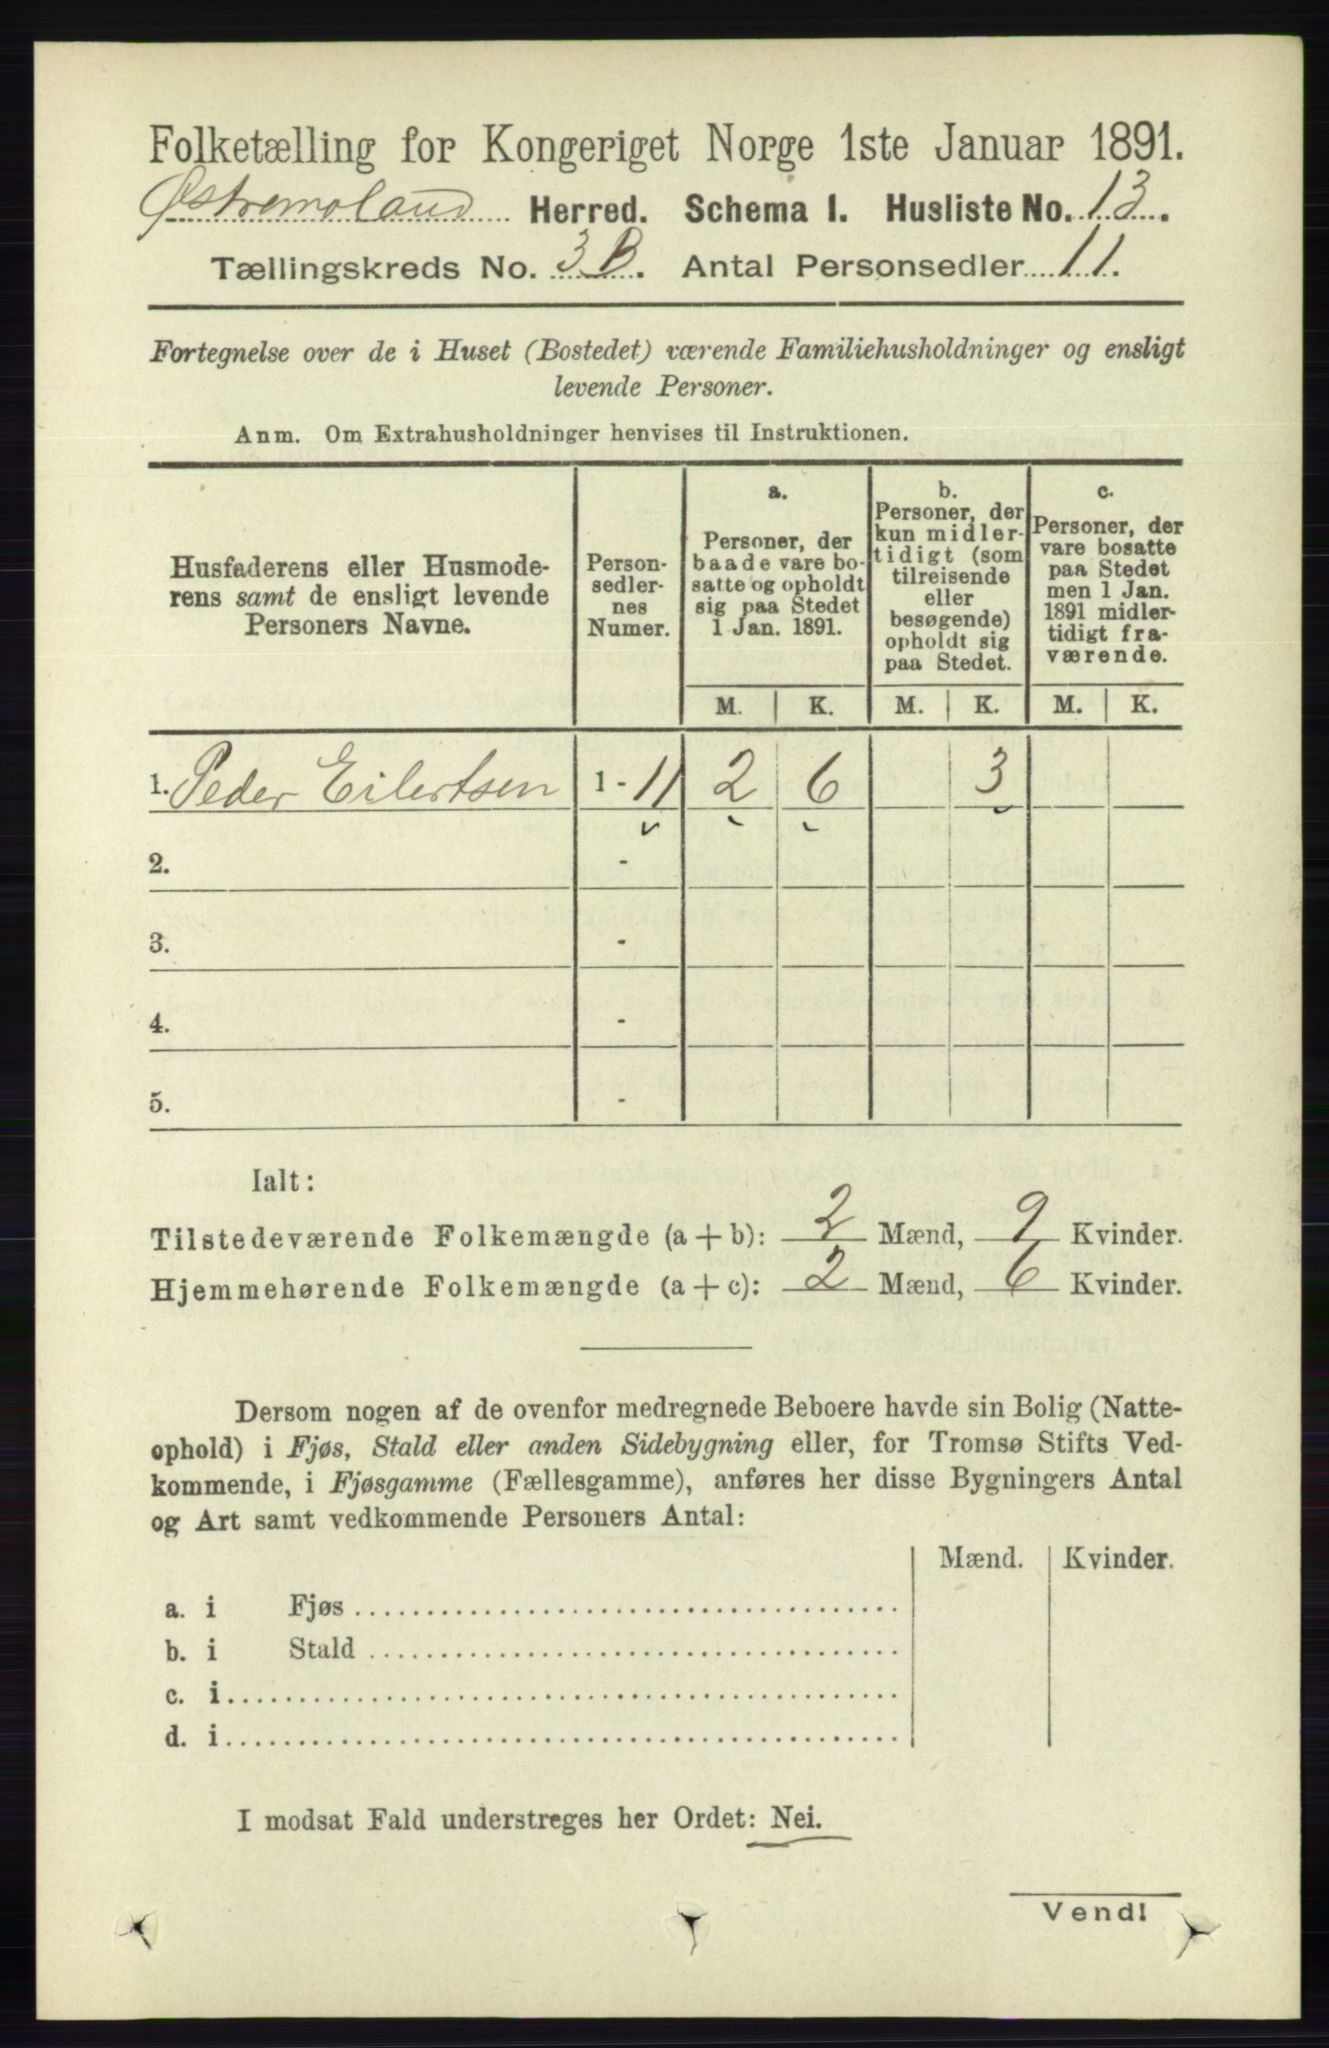 Folketælling for Kongeriget Norge 1ste Januar 1891.
Østremoland Herred. Schema I. Husliste No. 13.
Tællingskreds No. 3B. Antal Personsedler 11.
Fortegnelse over de i Huset (Bostedet) værende Familiehusholdninger og ensligt
levende Personer.
Anm. Om Extrahusholdninger henvises til Instruktionen.
Husfaderens eller Husmode-
rens samt de ensligt levende
Personers Navne.
Person-
sedler-
nes
Numer.
a.
Personer, der
baade vare bo-
satte og opholdt
sig paa Stedet
1 Jan. 1891.
b.
Personer, der
kun midler-
tidigt (som
tilreisende
eller
besøgende)
opholdt sig
paa Stedet.
c.
Personer, der
vare bosatte
paa Stedet
men 1 Jan.
1891 midler-
tidigt fra-
værende.
M. K. M. K. M. K.
1. Peder Eilertsen 1 - 11 2 6 3
2. -
3. -
4. -
5. -
Ialt:
Tilstedeværende Folkemængde (a + b): 2 Mænd, 9 Kvinder.
Hjemmehørende Folkemængde (a + c): 2 Mænd, 6 Kvinder.
Dersom nogen af de ovenfor medregnede Beboere havde sin Bolig (Natte-
ophold) i Fjøs, Stald eller anden Sidebygning eller, for Tromsø Stifts Ved-
kommende, i Fjøsgamme (Fællesgamme), anføres her disse Bygningers Antal
og Art samt vedkommende Personers Antal:
Mænd. Kvinder.
a. i Fjøs
b. i Stald
c. i
d. i
I modsat Fald understreges her Ordet: Nei.
Vend!